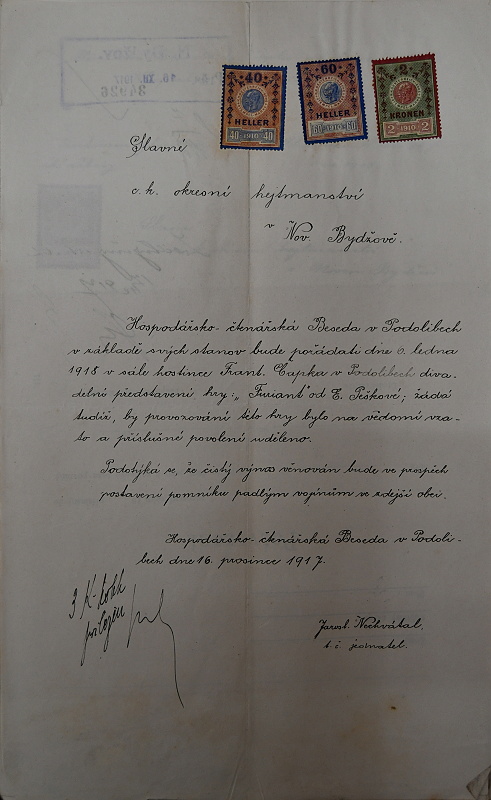 40
HELLER
40 1910 40
60
HELLER
60 1910 60
2
KRONEN
2 1910 2
34926
Slavné
c. k. okresní hejtmanství
v
Nov. Bydžově.
Hospodářsko-čtenářská Beseda v Podolibech
v základě svých stanov bude pořádati dne 6. ledna
1918 v sále hostince Frant. Čapka v Podolibech diva-
delní představení hry: „Furiant" od E. Peškové; žádá
tudíž, by provozování této hry bylo na vědomí vza-
to a příslušné povolení uděleno.
Podotýká se, že čistý výnos věnován bude ve prospěch
postavení pomníku padlým vojínům ve zdejší obci.
Hospodářsko-čtenářská Beseda v Podoli-
bech dne 16. prosince 1917.
3 K-kolk
přiložen
Jarosl. Nechvátal,
t. č. jednatel.